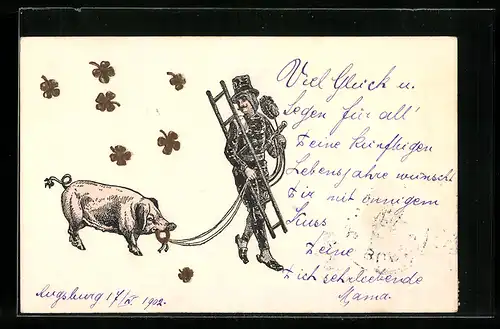 Viel Glück u.
Segen für all'
Deine künftigen
Lebensjahre wünscht
Dir mit innigem
Kuss
Deine
Dich sehr liebende
Mama.
Augsburg 17/X. 1902.